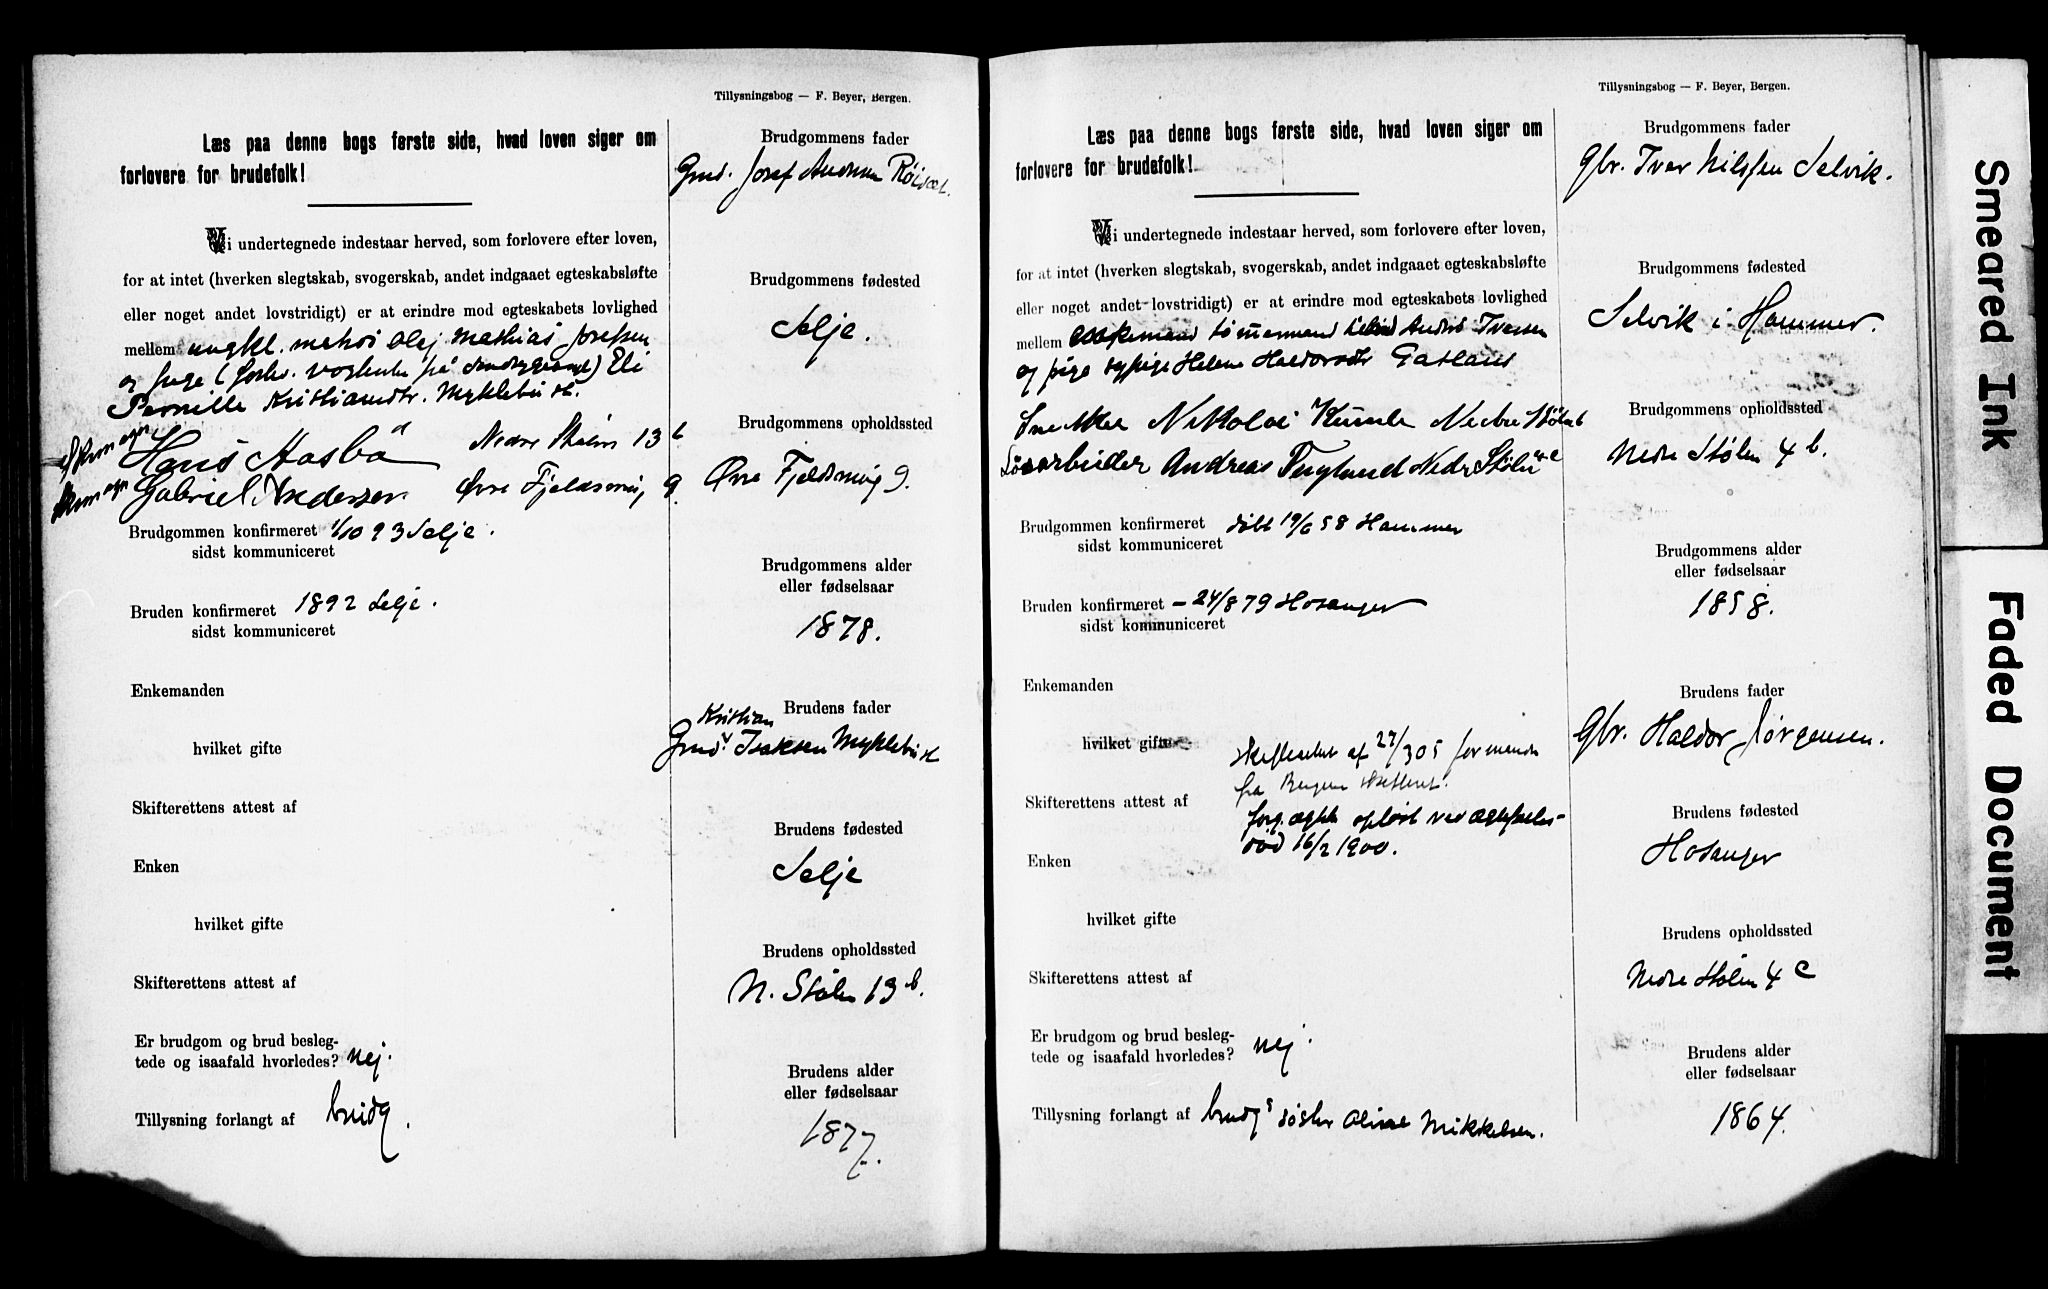 Tillysningsbog — F. Beyer, Bergen.
Læs paa denne bogs første side, hvad loven siger om
forlovere for brudefolk!
Vi undertegnede indestaar herved, som forlovere efter loven,
for at intet (hverken slegtskab, svogerskab, andet indgaaet egteskabsløfte
eller noget andet lovstridigt) er at erindre mod egteskabets lovlighed
mellem ungkl. Mathias Josefsen
og pige Eli
Pernille Kristiansdtr. Myklebust.
Hans Aasbø Nedre Stølen 13 b
Gabriel Andersen Øvre Fjeldsmug 9
Brudgommen konfirmeret 1/10 93 Selje.
sidst kommuniceret
Bruden konfirmeret 1892 Selje.
sidst kommuniceret
Enkemanden
hvilket gifte
Skifterettens attest af
Enken
hvilket gifte
Skifterettens attest af
Er brudgom og brud besleg-
tede og isaafald hvorledes? nej.
Tillysning forlangt af brudg.
Brudgommens fader
Gmd. Josef
Brudgommens fødested
Selje.
Brudgommens opholdssted
Øvre Fjeldsmug 9.
Brudgommens alder
eller fødselsaar
1878.
Brudens fader
Kristian
Gmd. Isaksen Myklebust
Brudens fødested
Selje
Brudens opholdssted
N. Stølen 13 b.
Brudens alder
eller fødselsaar
1877.
Tillysningsbog — F. Beyer, Bergen.
Læs paa denne bogs første side, hvad loven siger om
forlovere for brudefolk!
Vi undertegnede indestaar herved, som forlovere efter loven,
for at intet (hverken slegtskab, svogerskab, andet indgaaet egteskabsløfte
eller noget andet lovstridigt) er at erindre mod egteskabets lovlighed
mellem enkemand tømmermand Iversen
og pige sypige Helene Haldorsdtr
Snekker Nikolai Nedre Stølen
Løsarbeider Andreas Nedre Stølen 4 c
Brudgommen konfirmeret døbt 19/6 58 Hammer
sidst kommuniceret
Bruden konfirmeret – 24/8 79 Hosanger
sidst kommuniceret
Enkemanden
hvilket gifte
af 27/3 05
fra Bergens skifteret.
Skifterettens attest af
forg. ægtsk. opløst ved ægtefælles
død 16/2 1900.
Enken
hvilket gifte
Skifterettens attest af
Er brudgom og brud besleg-
tede og isaafald hvorledes? nej.
Tillysning forlangt af brudgs søster Mikkelsen.
Brudgommens fader
Gbr. Iver Nilssen Selvik.
Brudgommens fødested
Selvik i Hammer.
Brudgommens opholdssted
Nedre Stølen 4 b.
Brudgommens alder
eller fødselsaar
1858.
Brudens fader
Gbr. Haldor Jørgensen.
Brudens fødested
Hosanger
Brudens opholdssted
Nedre Stølen 4 c
Brudens alder
eller fødselsaar
1864.
Smeared Ink
Faded Document